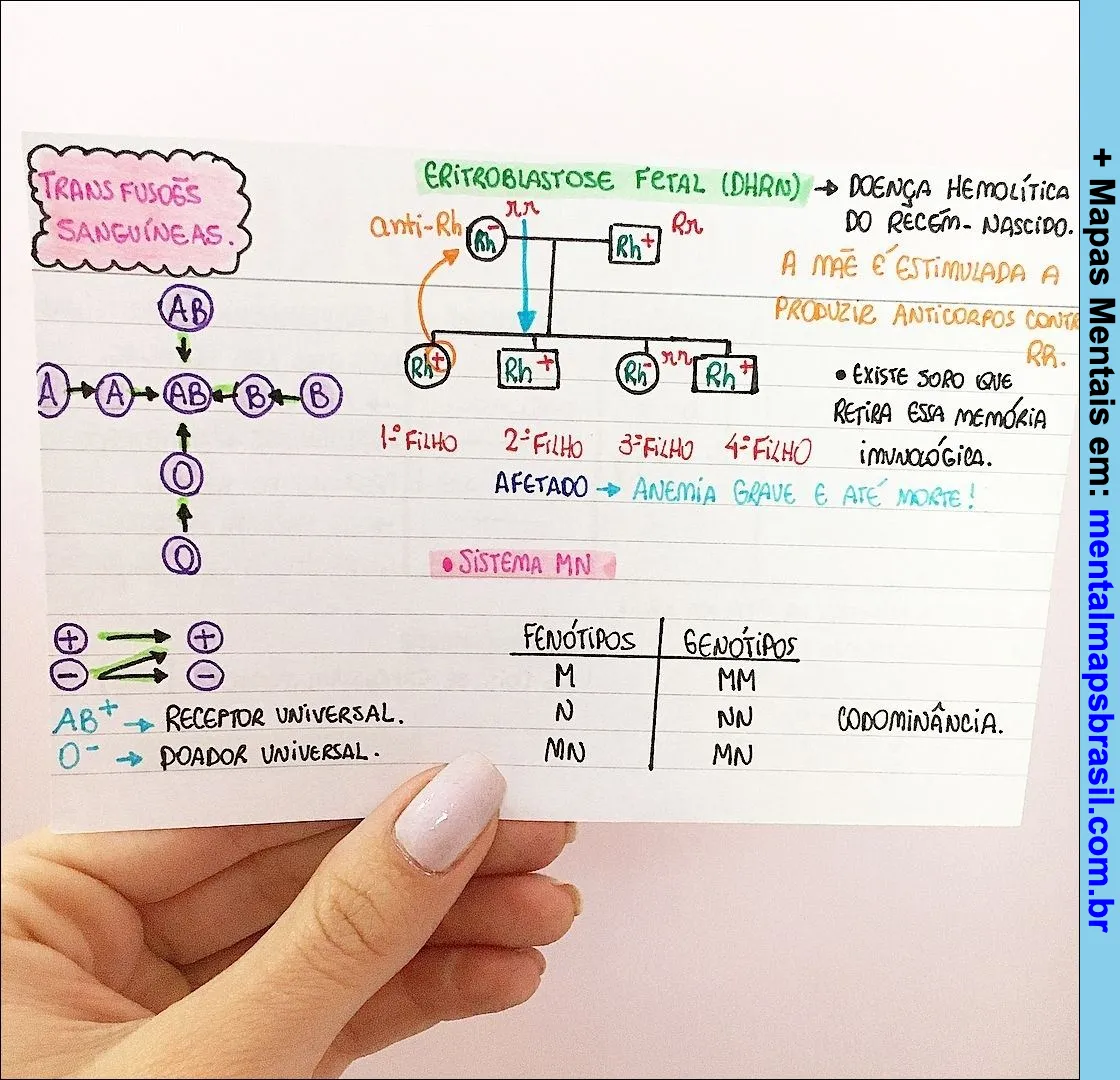 TRANSFUSOẼS
SANGUÍNEAS.
AB
A A AB B B
O
O
+ +
- -
AB+ → RECEPTOR UNIVERSAL.
O- → DOADOR UNIVERSAL.
ERITROBLASTOSE FETAL (DHRN) → DOENÇA HEMOLÍTICA
DO RECÉM-NASCIDO.
anti-Rh Rh- rr Rh+ Rr
A MÃE É ESTIMULADA A
PRODUZIR ANTICORPOS CONT
RR.
Rh+ Rh+ Rh- rr Rh+
1º FILHO 2º FILHO 3º FILHO 4º FILHO
AFETADO → ANEMIA GRAVE E ATÉ MORTE!
• EXISTE SORO QUE
RETIRA ESSA MEMÓRIA
IMUNOLÓGICA.
• SISTEMA MN
FENÓTIPOS GENÓTIPOS
M MM
N NN
MN MN
CODOMINÂNCIA.
+ Mapas Mentais em: mentalmapsbrasil.com.br